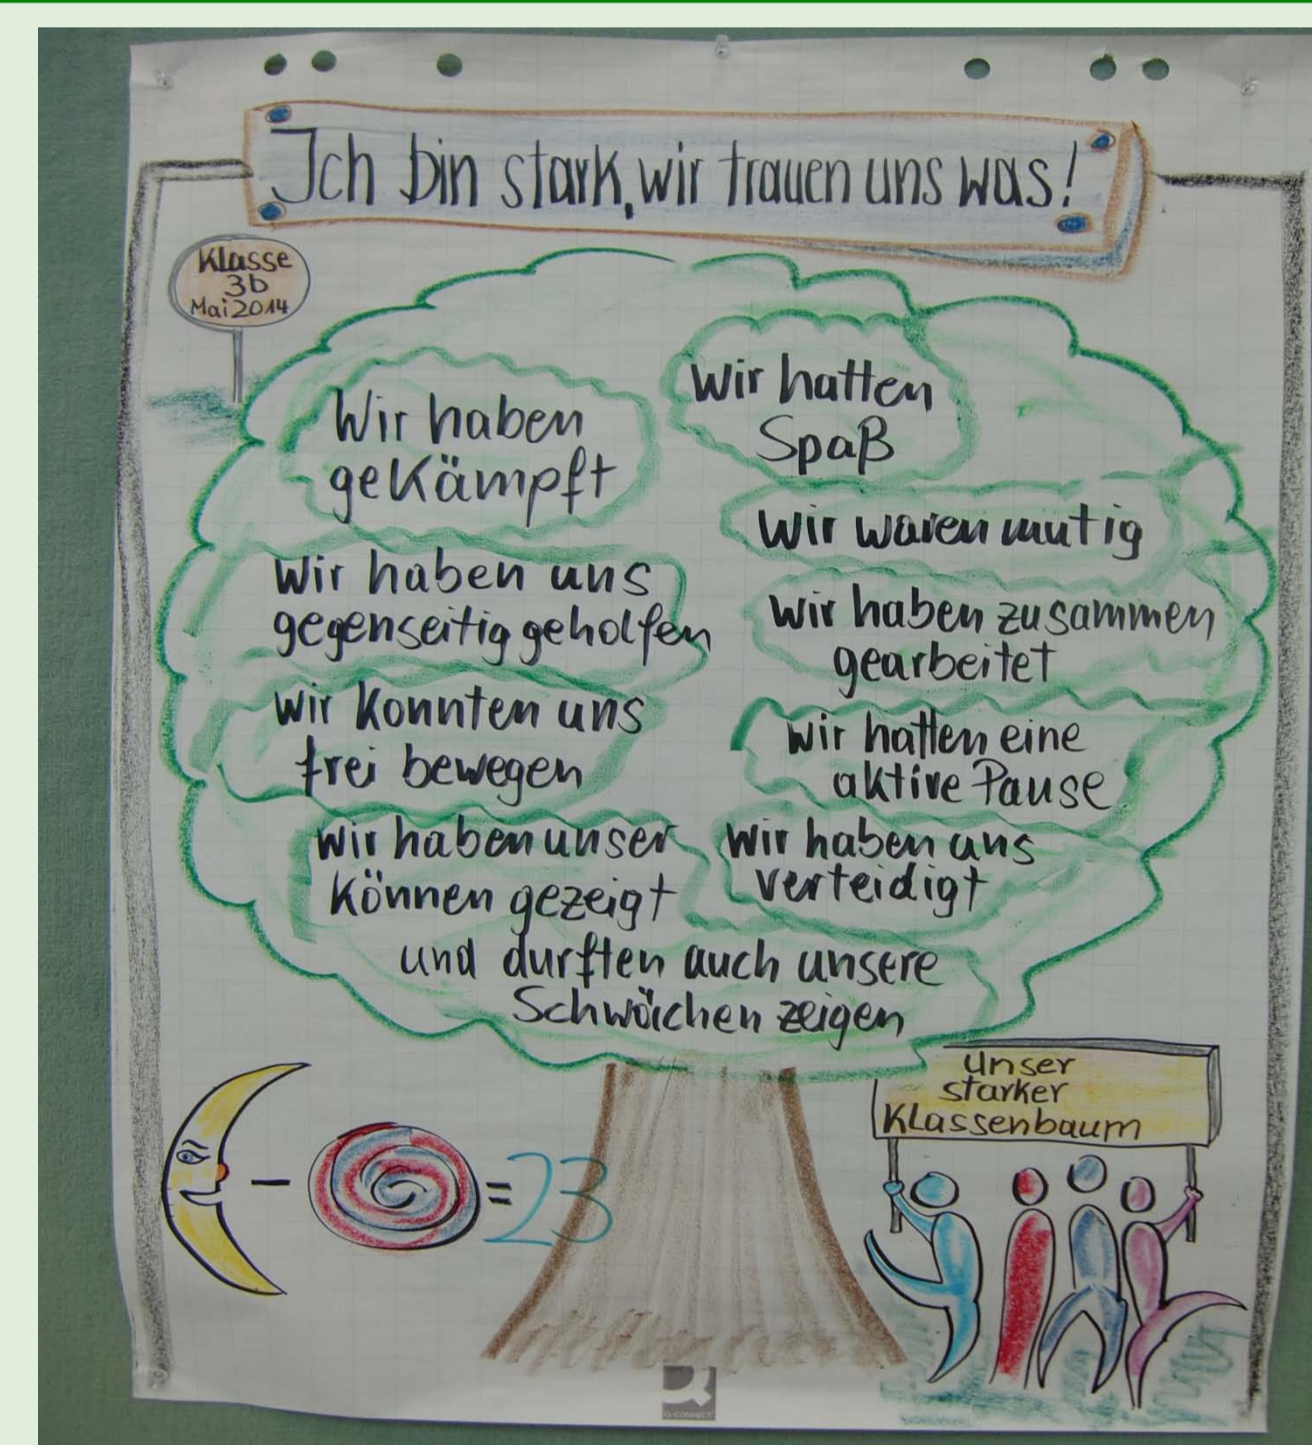 Ich bin stark, wir trauen uns was!
Klasse
3b
Mai 2014
Wir haben
gekämpft
Wir hatten
Spaß
Wir waren mutig
Wir haben uns
gegenseitig geholfen
Wir haben zusammen
gearbeitet
Wir konnten uns
frei bewegen
Wir hatten eine
aktive Pause
Wir haben unser
Können gezeigt
Wir haben uns
verteidigt
und durften auch unsere
Schwächen zeigen
unser
starker
Klassenbaum
- = 23
Q-CONNECT